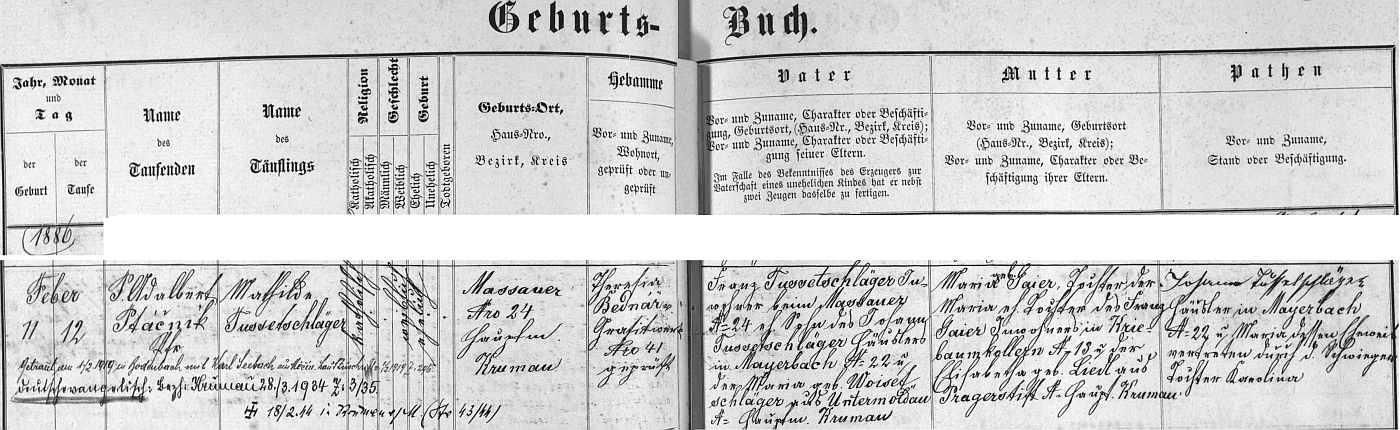 Geburts-
Buch.
Jahr, Monat
und
Tag
der
Geburt
der
Taufe
Name
des
Taufenden
Name
des
Täuflings
Religion
Katholisch
Akatholisch
Geschlecht
Männlich
Weiblich
Geburt
Ehelich
Unehelich
Todtgeboren
Geburts-Ort,
Haus-Nro.,
Bezirk, Kreis
Hebamme
Vor- und Zuname,
Wohnort,
geprüft oder un-
geprüft
Vater
Vor- und Zuname, Charakter oder Beschäfti-
gung, Geburtsort, (Haus-Nr., Bezirk, Kreis);
Vor- und Zuname, Charakter oder Beschäfti-
gung seiner Eltern.
Im Falle des Bekenntnisses des Erzeugers zur
Vaterschaft eines unehelichen Kindes hat er nebst
zwei Zeugen dasselbe zu fertigen.
Mutter
Vor- und Zuname, Geburtsort
(Haus-Nr., Bezirk, Kreis);
Vor- und Zuname, Charakter oder Be-
schäftigung ihrer Eltern.
Pathen
Vor- und Zuname,
Stand oder Beschäftigung.
1886
Feber
11 12
P. Adalbert
Ptačnik
Pfr.
Mathilde
Tussetschläger
katholisch
weiblich
ehelich
Massauer
Nro 24
Hauptm.
Krumau
Theresia
Bednář
Nro 41
geprüft
Franz Tussetschläger In-
wohner beim Massauer
N= 24 eh. Sohn des Johann
Tussetschläger Häuslers
in Mayerbach N= 22 u
der Maria geb. Woiset-
schläger aus Untermoldau
N= Hauptm. Krumau
Maria geb. Gaier, Tochter der
Maria eh. Tochter des Franz
Gaier Inwohners in Krie-
baumkollern N= 13 u der
Elisabetha geb. Liedl aus
Pragerstift N= Haupt. Krumau.
Johann Tussetschläger
Häusler in Mayerbach
N= 22 u Maria dessen Eheweib
vertreten durch d. Schwieger
Tochter Karolina
Getraut am 1/2 1919 in mit Karl Seebach aus
deutschevangelisch: Bezh: Krumau 28/3.1934 Z: 3/35.
18/2.44 i: Krumau a/M (Sto 43/44)